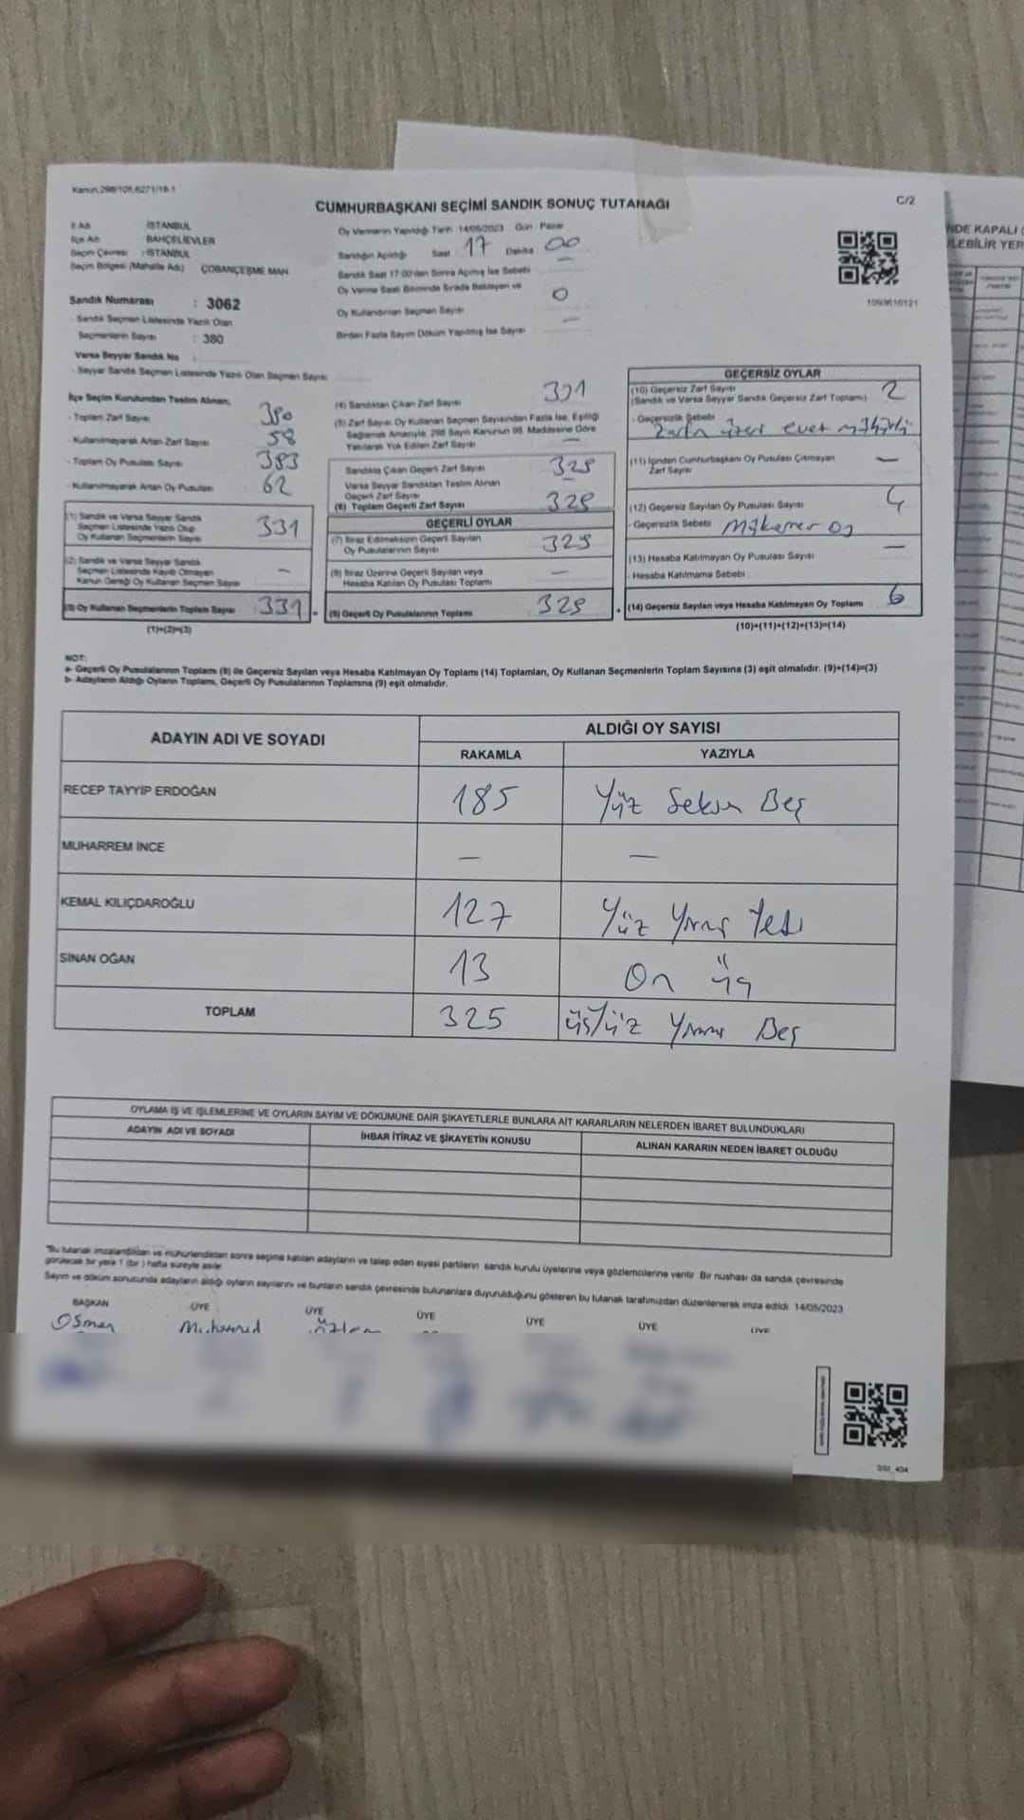 Kanun:298/105,6271/18-1
CUMHURBAŞKANI SEÇİMİ SANDIK SONUÇ TUTANAĞI
C/2
İl Adı : İSTANBUL
İlçe Adı : BAHÇELİEVLER
Seçim Çevresi : İSTANBUL
Seçim Bölgesi (Mahalle Adı) ÇOBANÇEŞME MAH.
Sandık Numarası : 3062
Sandık Seçmen Listesinde Yazılı Olan
Seçmenlerin Sayısı : 380
Varsa Seyyar Sandık No
Seyyar Sandık Seçmen Listesinde Yazılı Olan Seçmen Sayısı
Oy Vermenin Yapıldığı Tarih 14/05/2023 Gün Pazar
Sandığın Açıldığı Saat 17 Dakika 00
Sandık Saat 17:00'den Sonra Açılmış İse Sebebi —
Oy Verme Saati Bitiminde Sırada Bekleyen ve
Oy Kullandırılan Seçmen Sayısı 0
Birden Fazla Sayım Döküm Yapılmış İse Sayısı —
1093616121
İlçe Seçim Kurulundan Teslim Alınan;
- Toplam Zarf Sayısı 380
- Kullanılmayarak Artan Zarf Sayısı 58
- Toplam Oy Pusulası Sayısı 383
- Kullanılmayarak Artan Oy Pusulası 62
(1) Sandık ve Varsa Seyyar Sandık
Seçmen Listesinde Yazılı Olup
Oy Kullanan Seçmenlerin Sayısı 331
(2) Sandık ve Varsa Seyyar Sandık
Seçmen Listesinde Kayıtlı Olmayan
Kanun Gereği Oy Kullanan Seçmen Sayısı —
(3) Oy Kullanan Seçmenlerin Toplam Sayısı 331
(1)+(2)=(3)
(4) Sandıktan Çıkan Zarf Sayısı 331
(5) Zarf Sayısı Oy Kullanan Seçmen Sayısından Fazla İse, Eşitliği
Sağlamak Amacıyla, 298 Sayılı Kanunun 98. Maddesine Göre
Yakılarak Yok Edilen Zarf Sayısı —
Sandıkta Çıkan Geçerli Zarf Sayısı 329
Varsa Seyyar Sandıktan Teslim Alınan
Geçerli Zarf Sayısı
(6) Toplam Geçerli Zarf Sayısı 329
GEÇERLİ OYLAR
(7) İtiraz Edilmeksizin Geçerli Sayılan
Oy Pusulalarının Sayısı 325
(8) İtiraz Üzerine Geçerli Sayılan veya
Hesaba Katılan Oy Pusulası Toplamı —
(9) Geçerli Oy Pusulalarının Toplamı 325
GEÇERSİZ OYLAR
(10) Geçersiz Zarf Sayısı 2
(Sandık ve Varsa Seyyar Sandık Geçersiz Zarf Toplamı)
- Geçersizlik Sebebi
Zarfın üzeri evet mühürlü
(11) İçinden Cumhurbaşkanı Oy Pusulası Çıkmayan
Zarf Sayısı —
(12) Geçersiz Sayılan Oy Pusulası Sayısı 4
- Geçersizlik Sebebi Mükerrer oy
(13) Hesaba Katılmayan Oy Pusulası Sayısı —
- Hesaba Katılmama Sebebi
(14) Geçersiz Sayılan veya Hesaba Katılmayan Oy Toplamı 6
(10)+(11)+(12)+(13)=(14)
NOT:
a- Geçerli Oy Pusulalarının Toplamı (9) ile Geçersiz Sayılan veya Hesaba Katılmayan Oy Toplamı (14) Toplamları, Oy Kullanan Seçmenlerin Toplam Sayısına (3) eşit olmalıdır. (9)+(14)=(3)
b- Adayların Aldığı Oyların Toplamı, Geçerli Oy Pusulalarının Toplamına (9) eşit olmalıdır.
ADAYIN ADI VE SOYADI
ALDIĞI OY SAYISI
RAKAMLA YAZIYLA
RECEP TAYYİP ERDOĞAN 185 Yüz Seksen Beş
MUHARREM İNCE — —
KEMAL KILIÇDAROĞLU 127 Yüz Yirmi Yedi
SİNAN OĞAN 13 On üç
TOPLAM 325 üçYüz Yirmi Beş
OYLAMA İŞ VE İŞLEMLERİNE VE OYLARIN SAYIM VE DÖKÜMÜNE DAİR ŞİKAYETLERLE BUNLARA AİT KARARLARIN NELERDEN İBARET BULUNDUKLARI
ADAYIN ADI VE SOYADI İHBAR İTİRAZ VE ŞİKAYETİN KONUSU ALINAN KARARIN NEDEN İBARET OLDUĞU
*Bu tutanak imzalandıktan ve mühürlendikten sonra seçime katılan adayların ve talep eden siyasi partilerin sandık kurulu üyelerine veya gözlemcilerine verilir. Bir nüshası da sandık çevresinde
görülecek bir yere 1 (bir) hafta süreyle asılır.
Sayım ve döküm sonucunda adayların aldığı oyların sayılarını ve bunların sandık çevresinde bulunanlara duyurulduğunu gösteren bu tutanak tarafımızdan düzenlenerek imza edildi. 14/05/2023
BAŞKAN ÜYE ÜYE ÜYE ÜYE ÜYE ÜYE
Osman
NDE KAPALI